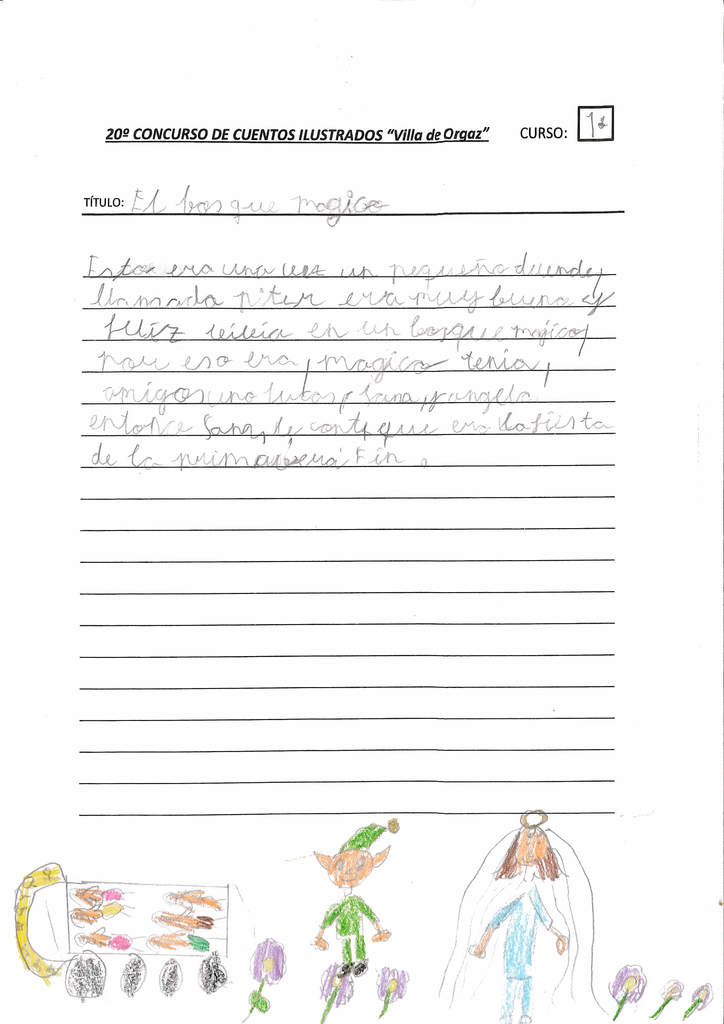 20º CONCURSO DE CUENTOS ILUSTRADOS “Villa de Orgaz” CURSO: 1º
TÍTULO: El bosque magico
Esto era una vez un pequeño duende,
llamado piter era muy bueno y
feliz vivia en un bosque majico,
por eso era, magico tenia,
amigos uno lucas, sara, y angela
entonce sara, le conto, que era la fiesta
de la primavera Fin.